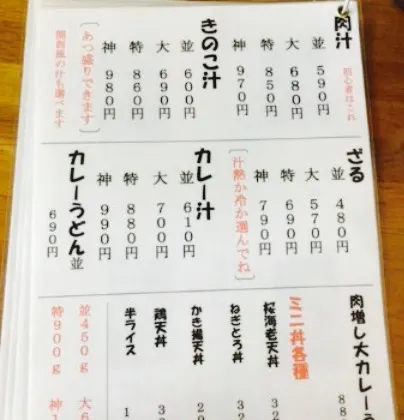 肉汁
初心者はこれ
並 590円
大 680円
特 850円
神 970円
きのこ汁
並 600円
大 690円
特 860円
神 980円
［あつ盛りできます］
関西風の汁も選べます
ざる
並 480円
大 570円
特 690円
神 790円
［汁熱か冷か選んでね］
カレー汁
並 610円
大 700円
特 880円
神 990円
カレーうどん 並
690円
肉増し大カレーう
ミニ丼各種
桜海老天丼
ねぎとろ丼
かき揚天丼
鶏天丼
半ライス
並450g
特900g